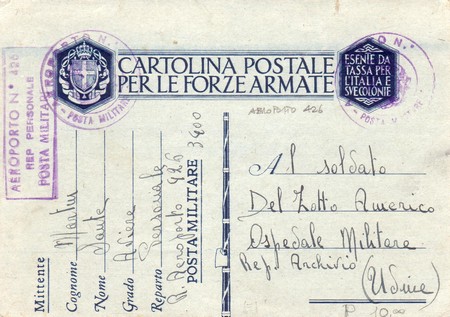 AEROPORTO N° 426
REP PERSONALE
POSTA MILITARE
CARTOLINA POSTALE
PER LE FORZE ARMATE
ESENTE DA
TASSA PER
L'ITALIA E
SVE COLONIE
POSTA MILITARE
AEROPORTO 426
Mittente
Cognome
Nome
Grado Aviere
Reparto Personale
R. Aeroporto 426
POSTA MILITARE 3400
Al soldato
Del Zotto Americo
Ospedale Militare
Rep. Archivio
(Udine)
P 10,00